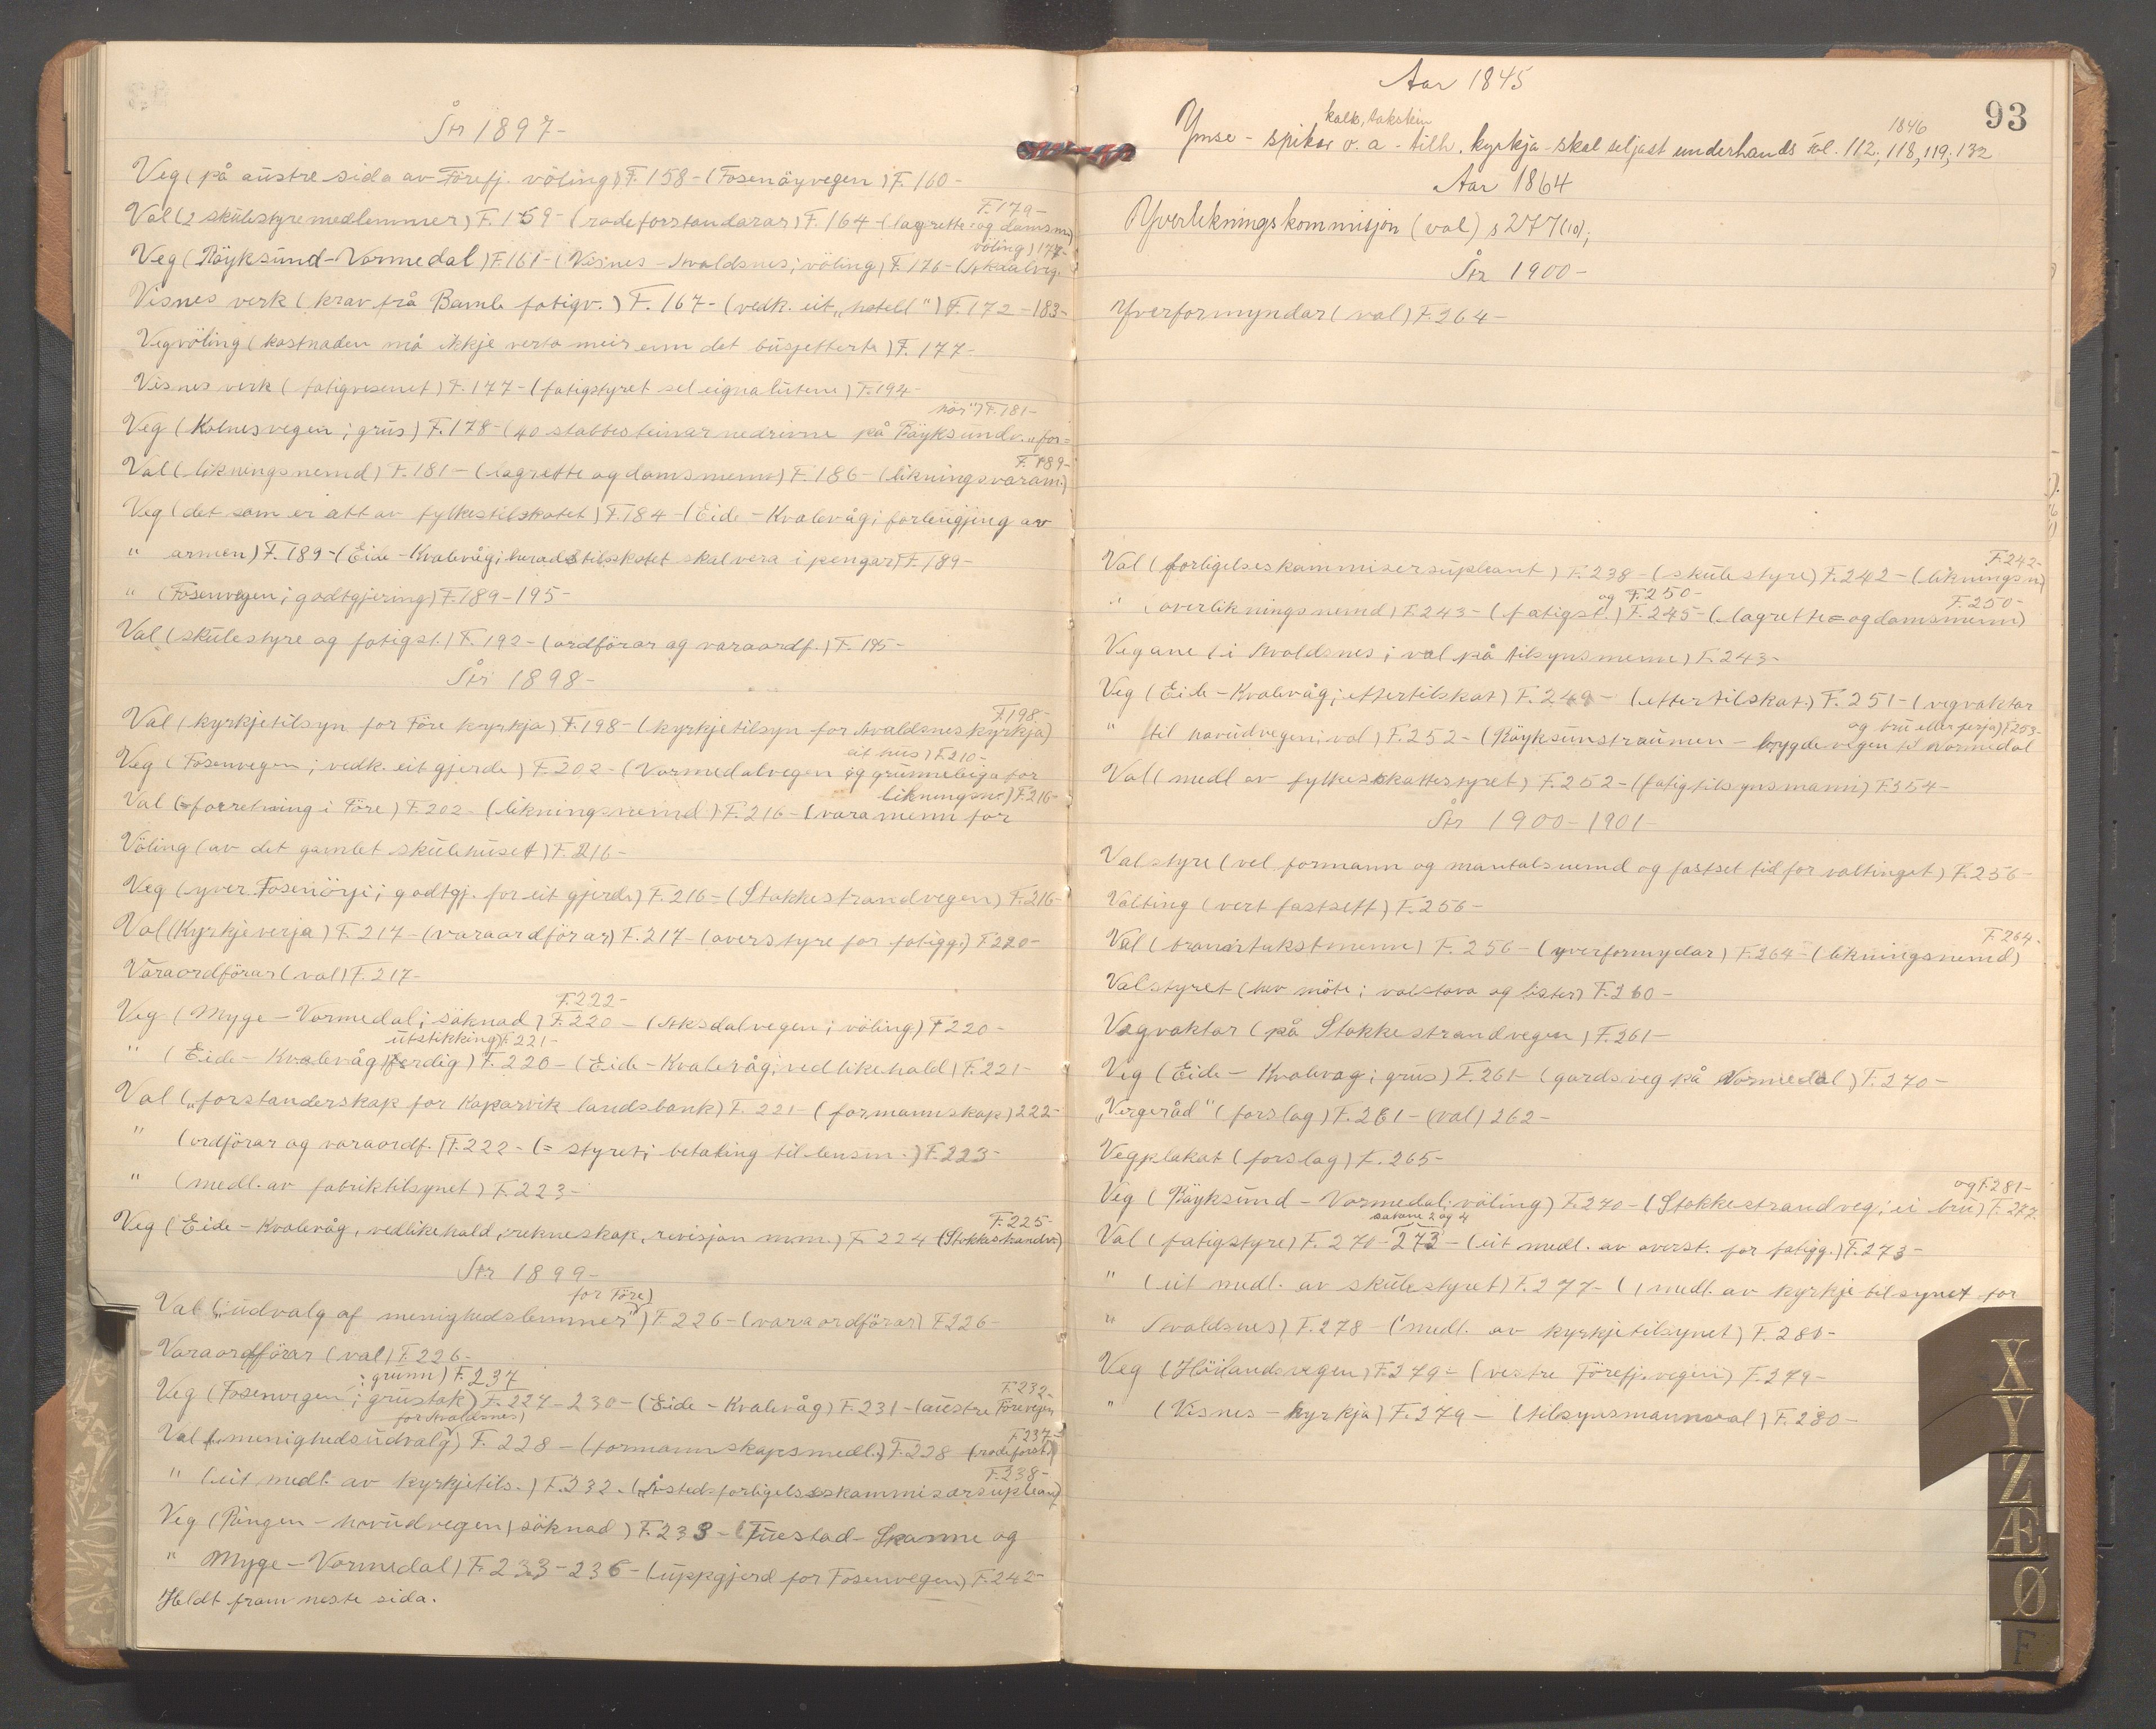 År 1897-
Veg (på austre sida av Förefj. völing) F. 158- (Fosenöyvegen) F. 160-
F. 179-
Val (2 skulestyremedlemmer) F. 159- (rodeforstandarar) F. 164- (lagrette- og domsm.)
völing) 177-
Veg (Röyksund-Vormedal) F. 161- (Visnes-Avaldsnes; völing) F. 176-
Visnes verk (krav frå Bamle fatigv.) F. 167- (vedk. eit "hotell") F. 172-183-
Vegvöling (kostnaden må ikkje verta meir enn det budsjetterte) F. 177-
Visnes verk (fatigvesenet) F. 177- (fatigstyret sel eignalutene) F. 194-
når") F. 181-
Veg (Kolnesvegen; grus) F. 178- (40 stabbesteinar nedrivne på Röyksundv. "for=
F. 189-
Val (likningsnemd) F. 181- (lagrette og domsmenn) F. 186- (likningsvaram.)
Veg (det som er att av fylkestilskotet) F. 184- (Eide-Kvalevåg; forlengjing av
" armen) F. 189- (Eide-Kvalevåg; heradstilskotet skal vera i pengar) F. 189-
" (Fosenvegen; godtgjering) F. 189-195-
Val (skulestyre og fatigst.) F. 192- (ordförar og varaordf.) F. 195-
År 1898-
F. 198-
Val (kyrkjetilsyn for Före kyrkja) F. 198- (kyrkjetilsyn for Avaldsnes kyrkja)
eit hus) F. 210-
Veg (Fosenvegen; vedk. eit gjerde) F. 202- (Vormedalvegen og grunnleiga for
likningsn.) F. 216-
Val (=forretning i Före) F. 202- (likningsnemd) F. 216- (varamenn for
Völing (av det gamlet skulehuset) F. 216-
Veg (yver Fosenöyi; godtgj. for eit gjerde) F. 216- (Stokkestrandvegen) F. 216-
Val (Kyrkjeverja) F. 217- (varaordförar) F. 217- (overstyre for fatigg.) F. 220-
Varaordförar (val) F. 217-
F. 222-
Veg (Myge-Vormedal; söknad) F. 220- (Aksdalvegen; völing) F. 220-
utstikking) F. 221-
" (Eide-Kvalevåg) ferdig) F. 220- (Eide-Kvalevåg; vedlikehald) F. 221-
Val ("forstanderskap for Kopervik landsbank) F. 221- (formannskap) 222-
" (ordförar og varaordf.) F. 222- (=styret; betaling til lensm.) F. 223-
" (medl. av fabriktilsynet) F. 223-
F. 225-
Veg (Eide-Kvalevåg, vedlikehald, rekneskap, revisjon m.m.) F. 224 (Stokkestrandv.)
År 1899-
for Före)
Val ("udvalg af menighedslemmer") F. 226- (varaordförar) F. 226-
Varaordförar (val) F. 226-
; grunn) F. 237
F. 232-
Veg (Fosenvegen; grustak) F. 227-230- (Eide-Kvalevåg) F. 231- (austre Förevegen
for Avaldsnes)
F. 237-
Val (menighedsudvalg) F. 228- (formannskapsmedl.) F. 228 (rodeforst.)
F. 238-
" (eit medl. av kyrkjetils.) F. 232. (Åsted-forligelseskommisærsupleant)
Veg (Ringen-hovudvegen, söknad) F. 233- (Tuestad-Skanne og
" Myge-Vormedal) F. 233-236- (uppgjerd for Fosenvegen) F. 242-
Heldt fram neste sida.
Aar 1845
93
kalk, takstein
1846
Ymse - spikar o.a. - tilh. kyrkja - skal seljast underhands fol. 112, 118, 119, 132
Aar 1864
Yverlikningskommisjon (val) s 277 (10);
År 1900-
Yverformyndar (val) F. 264-
F. 242-
Val (forligelseskommisersupleant) F. 238- (skulestyre) F. 242- (likningsn.)
og F. 250-
F. 250-
" (overlikningsnemd) F. 243- (fatigst.) F. 245- (lagrette= og domsmenn)
Vegane (i Avaldsnes; val på tilsynsmenn) F. 243-
Veg (Eide-Kvalevåg; ettertilskot) F. 249- (ettertilskot) F. 251- (vegvaktar
og bru eller ferja) F. 253-
" til hovudvegen; val) F. 252- (Röyksunstraumen - bygdevegen til Vormedal
Val (medl av fylkesskattestyret) F. 252- (fatigtilsynsmann) F. 354-
År 1900-1901-
Valstyre (vel formann og mantalsnemd og fastset tid for valtinget) F. 256-
Valting (vert fastsett) F. 256-
F. 264-
Val (branntakstmenn) F. 256- (yverformydar) F. 264- (likningsnemd)
Valstyret (hev möte; valstova og lister) F. 260-
Vegvaktar (på Stokkestrandvegen) F. 261-
Veg (Eide-Kvalevag; grus) F. 261- (gardsveg på Vormedal) F. 270-
"Vergeråd" (forslag) F. 261- (val) 262-
Vegplakat (forslag) F. 265-
og F. 281-
Veg (Röyksund-Vormedal; völing) F. 270- (Stokkestrandveg; ei bru) F. 277.
sakane 2 og 4
Val (fatigstyre) F. 270-273- (eit medl. av overst. for fatigg.) F. 273-
" (eit medl. av skulestyret) F. 277- (1 medl. av kyrkjetilsynet for
" Avaldsnes) F. 278- (1 medl. av kyrkjetilsynet) F. 280-
Veg (Höilandsvegen) F. 279- (vestre Förefj.vegen) F. 279-
" (Visnes-kyrkja) F. 279- (tilsynsmannval) F. 280-
X
Y
Z
Æ
Ø
F